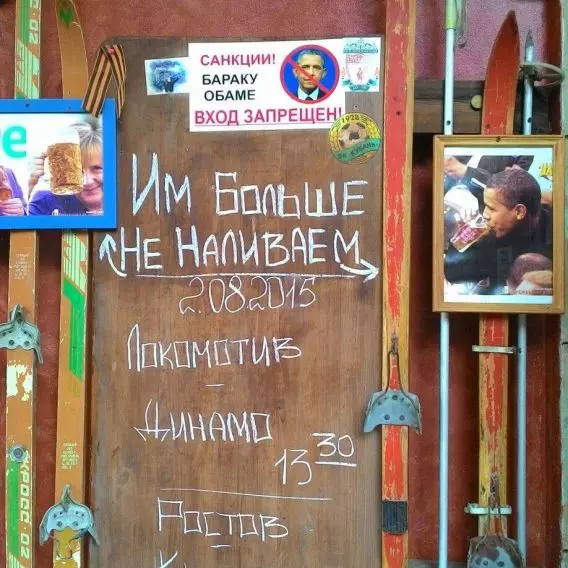 САНКЦИИ!
БАРАКУ
ОБАМЕ
ВХОД ЗАПРЕЩЕН!
1928
ФК КУБАНЬ
е
ИМ БОЛЬШЕ
НЕ НАЛИВАЕМ
2.08.2015
ЛОКОМОТИВ
-
ДИНАМО
13 30
РОСТОВ
КРОСС-02